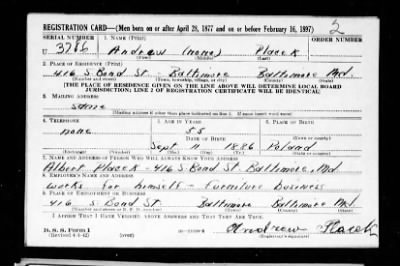 REGISTRATION CARD—(Men born on or after April 28, 1877 and on or before February 16, 1897) 2
SERIAL NUMBER 1. NAME (Print) ORDER NUMBER
U 3786 Andrew (none) Placek
(First) (Middle) (Last)
2. PLACE OF RESIDENCE (Print)
416 S Bond St. Baltimore Baltimore Md.
(Number and street) (Town, township, village, or city) (County) (State)
[THE PLACE OF RESIDENCE GIVEN ON THE LINE ABOVE WILL DETERMINE LOCAL BOARD
JURISDICTION; LINE 2 OF REGISTRATION CERTIFICATE WILL BE IDENTICAL]
3. MAILING ADDRESS
same
[Mailing address if other than place indicated on line 2. If same insert word same]
4. TELEPHONE 5. AGE IN YEARS 6. PLACE OF BIRTH
none 55
DATE OF BIRTH (Town or county)
Sept 11 1886 Poland
(Exchange) (Number) (Mo.) (Day) (Yr.) (State or country)
7. NAME AND ADDRESS OF PERSON WHO WILL ALWAYS KNOW YOUR ADDRESS
Albert Placek - 416 S Bond St. Baltimore, Md
8. EMPLOYER'S NAME AND ADDRESS
works for himself - Furniture business
9. PLACE OF EMPLOYMENT OR BUSINESS
416 S. Bond St. Baltimore Baltimore Md.
(Number and street or R. F. D. number) (Town) (County) (State)
I AFFIRM THAT I HAVE VERIFIED ABOVE ANSWERS AND THAT THEY ARE TRUE.
D. S. S. Form 1 Andrew Placek
(Revised 4-1-42) (over) (Registrant's signature)